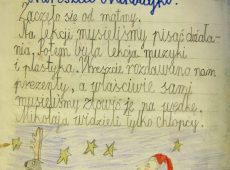 Nareszcie Mikołajki.
Zaczęło się od matmy.
Na lekcji musieliśmy pisać działa-
nia, potem była lekcja muzyki
i plastyka. Wreszcie rozdawano nam
prezenty, a właściwie sami
musieliśmy złowić je na wędkę.
Mikołaja widzieli tylko chłopcy.